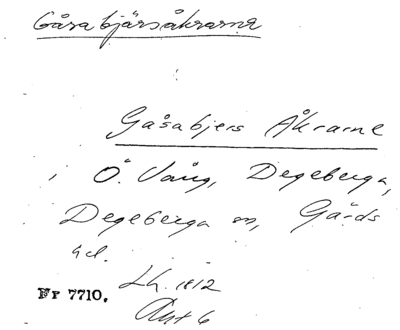 Gåsabjärsåkrarna
Gåsabjers Åkrarne
i Ö. Vång, Degeberga,
Degeberga sn, Gärds
hd.
Lh. 1812
Nr 7710.
Akt 6